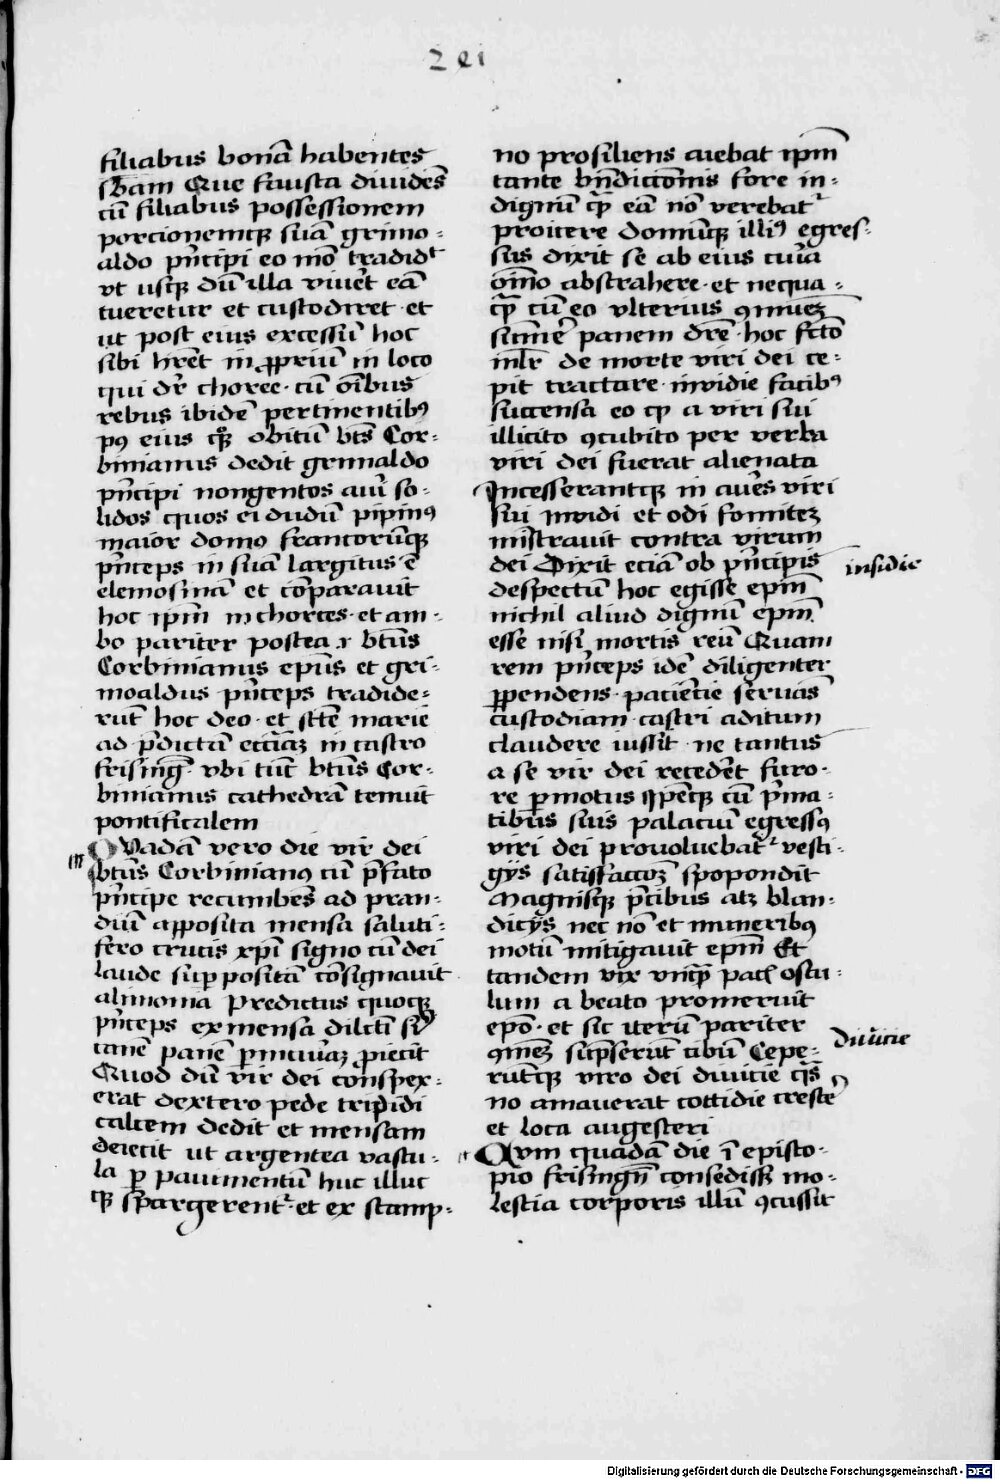 2ei
filiabus bonā habentes
sb̄am Que fausta diuidēs
cū filiabus possessionem
porcionemq; suā grimo-
aldo pn̄cipi eo mō tradidᵗ
vt usq; dū illa viuēt eā
tueretur et custodiret · et
ut post eius excessū hoc
sibi hrēt in ꝓpriū in loco
qui dr̄ choree · cū oībus
rebus ibidē pertinentib⁹
p⁹ eius obitū bt̄s Cor-
binianus dedit grimaldo
pn̄cipi nongentos auri so-
lidos quos ei dudū pipin⁹
maior dom⁹ francorūq;
pn̄ceps in suā largitus ē
elemosinā et cōparauit
hoc ipm̄ in chorces · et am-
bo pariter postea bt̄us
Corbinianus ep̄us et gri-
moaldus pn̄ceps tradide-
rūt hoc deo · et sc̄te marie
ad p̄dictā eccīaz in castro
frisinḡ · vbi tūc bt̄us Cor-
binianus cathedrā tenuit
pontificalem
QVadā vero die vir dei
bt̄us Corbinian⁹ cū p̄fato
pn̄cipe recumbēs ad pran-
diū apposita mensa saluti-
fero crucis xp̄i signo cū dei
laude suꝑpositā cōsignauit
alimonia Predictus quoq;
pn̄ceps ex mensa dilcti sui
canē panē ꝑmiuāz ꝓiecit
Quod dū vir dei conspex-
erat dextero pede tripidi
calcem dedit et mensam
deiecit ut argentea vascu-
la ꝑ pauimentū huc illuc
q; spargerent² · et ex scamp-
no prosiliens aiebat ipm̄
tante bn̄dicc̄onis fore in-
dignū ꝙ eā nō verebat²
proicere domūq; illi⁹ egres-
sus dixit se ab eius cura
om̄o abstrahere · et nequa-
ꝙ cū eo vlterius ꝯniuēz
sicm̄e panem dr̄e · hoc fc̄to
mlr̄ de morte viri dei ce-
pit tractare · inuidie facib⁹
succensa eo ꝙ a viri sui
illicito ꝯcubito per verba
viri dei fuerat alienata
Incesserantq; in aures viri
sui inuidi et odi fomitez
mīstrauit contra virum
dei Dixit eciā ob pn̄cipis
despectū hoc egisse ep̄m
nichil aliud dignū ep̄m
esse nisi mortis reū Quam
rem pn̄ceps idē diligenter
ꝑpendens · paciēcie seruās
custodiam · castri aditum
claudere iussit · ne tantus
a se vir dei recedēt furo-
re ꝑmotus ip̄eq; cū pri̇ma-
tibus suis palaciū egress⁹
viri dei prouoluebat² vesti-
gijs satisfacc̄oz spopondit
Magnisq; p̄cibus atz blan-
dicijs nec nō et munerib⁹
motū mitigauit ep̄m Et
tandem vix vnqꝫ pacē oscu-
lum a beato promeruit
ep̄o · et sic iterū pariter
ꝯmez supserūt cibū Cepe-
rūtq; viro dei diuicie qs̄
nō amauerat cottidie cresce
et loca augesteri
QVm quādā die ī episco-
pio frisingn̄ consedissz mo-
lestia corporis illū ꝯcussit
insidie
Diuicie
Digitalisierung gefördert durch die Deutsche Forschungsgemeinschaft - DFG